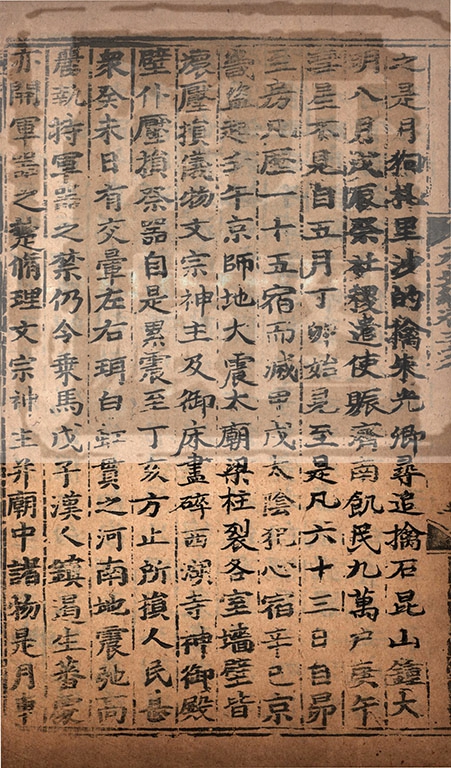 之是月狗札里沙的擒朱光卿尋追擒石昆山鍾大
明八月戊辰祭社稷遣使賑濟南飢民九萬戶庚午
彗星不見自五月丁卯始見至是凡六十三日自昴
至房凡歷一十五宿而滅甲戌太陰犯心宿辛巳京
盜起壬午京師地大震太廟梁柱裂各室墻壁皆
壞壓損儀物文宗神主及御床盡碎西湖寺神御殿
壁仆壓損祭器自是累震至丁亥方止所損人民甚
衆癸未日有交暈左右珥白虹貫之河南地震弛高
麗執持軍器之禁仍令乗馬戊子漢人鎮遏生蕃處
亦開軍器之禁脩理文宗神主并廟中諸物是月車